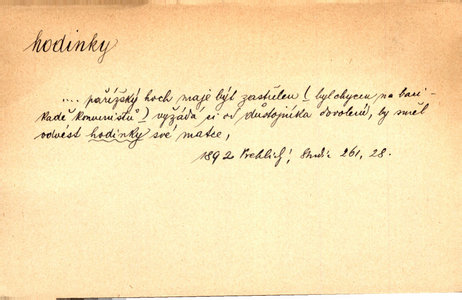 hodinky
... pařížský hoch maje být zastřelen (byl chycen na bari-
kadě komunistů) vyžádá si od důstojníka dovolení, by směl
odnést hodinky své matce,
1892 Vrchlický, Studie 261, 28.